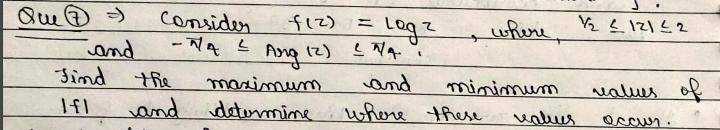 Que ⑦ ⇒ Consider f(z) = Log z , where, 1/2 ≤ |z| ≤ 2
and -π/4 ≤ Arg (z) ≤ π/4 .
Find the maximum and minimum values of
|f| and determine where these values occur.